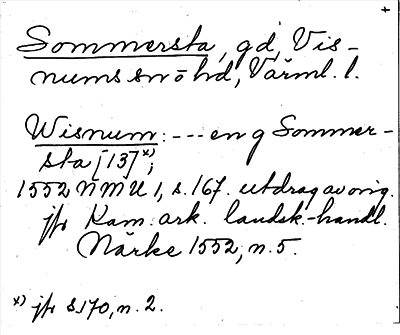 +
Sommersta, gd, Vis-
nums snö hd, Värml. l.
Wisnum: --- en g Sommer-
sta [13]x);
1552 NMU 1, s. 167. utdrag av orig.
jfr Kam. ark. landsk.-handl.
Närke 1552, n. 5.
x) jfr s. 170, n. 2.